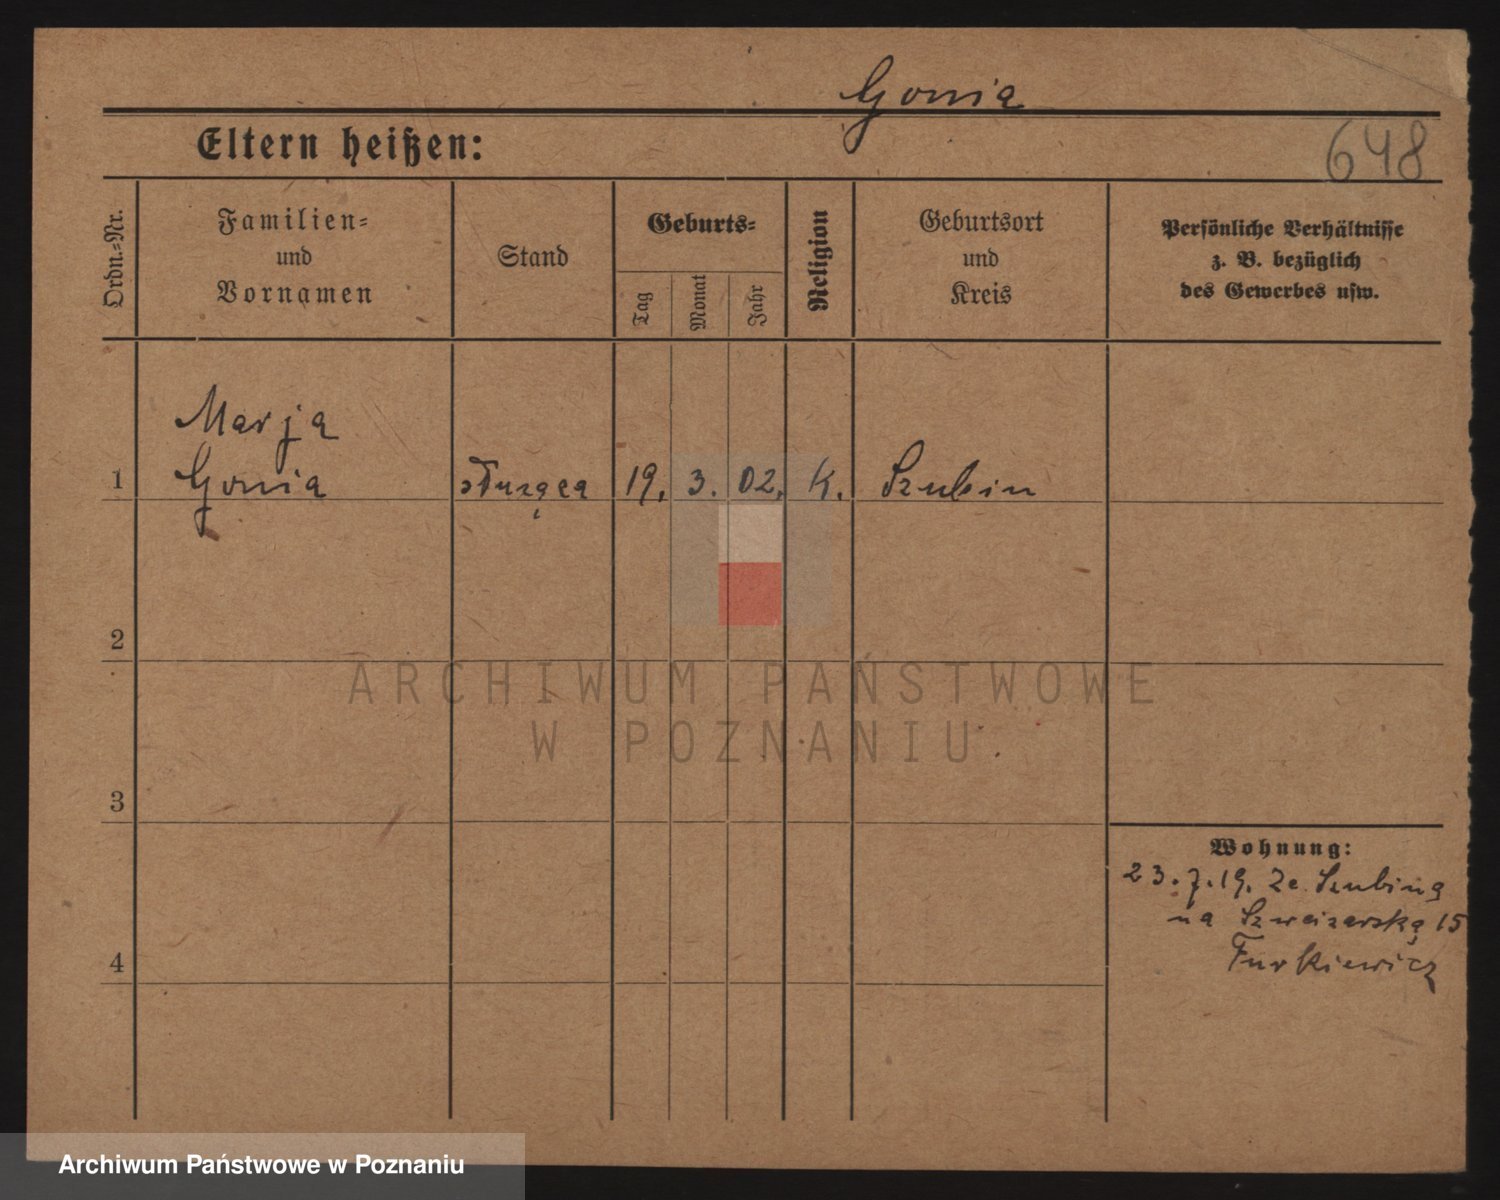 Gonia
Eltern heißen:
648
Ordn.-Nr.
Familien-
und
Vornamen
Stand
Geburts-
Tag
Monat
Jahr
Religion
Geburtsort
und
Kreis
Persönliche Verhältnisse
z. B. bezüglich
des Gewerbes usw.
Marja
1 Gonia służąca 19. 3. 02. K. Szubin
2
3
4
Wohnung:
23.7.19. Ze Szubina
na Szweizarską 15
Furkiewicz
ARCHIWUM PAŃSTWOWE
W POZNANIU
Archiwum Państwowe w Poznaniu